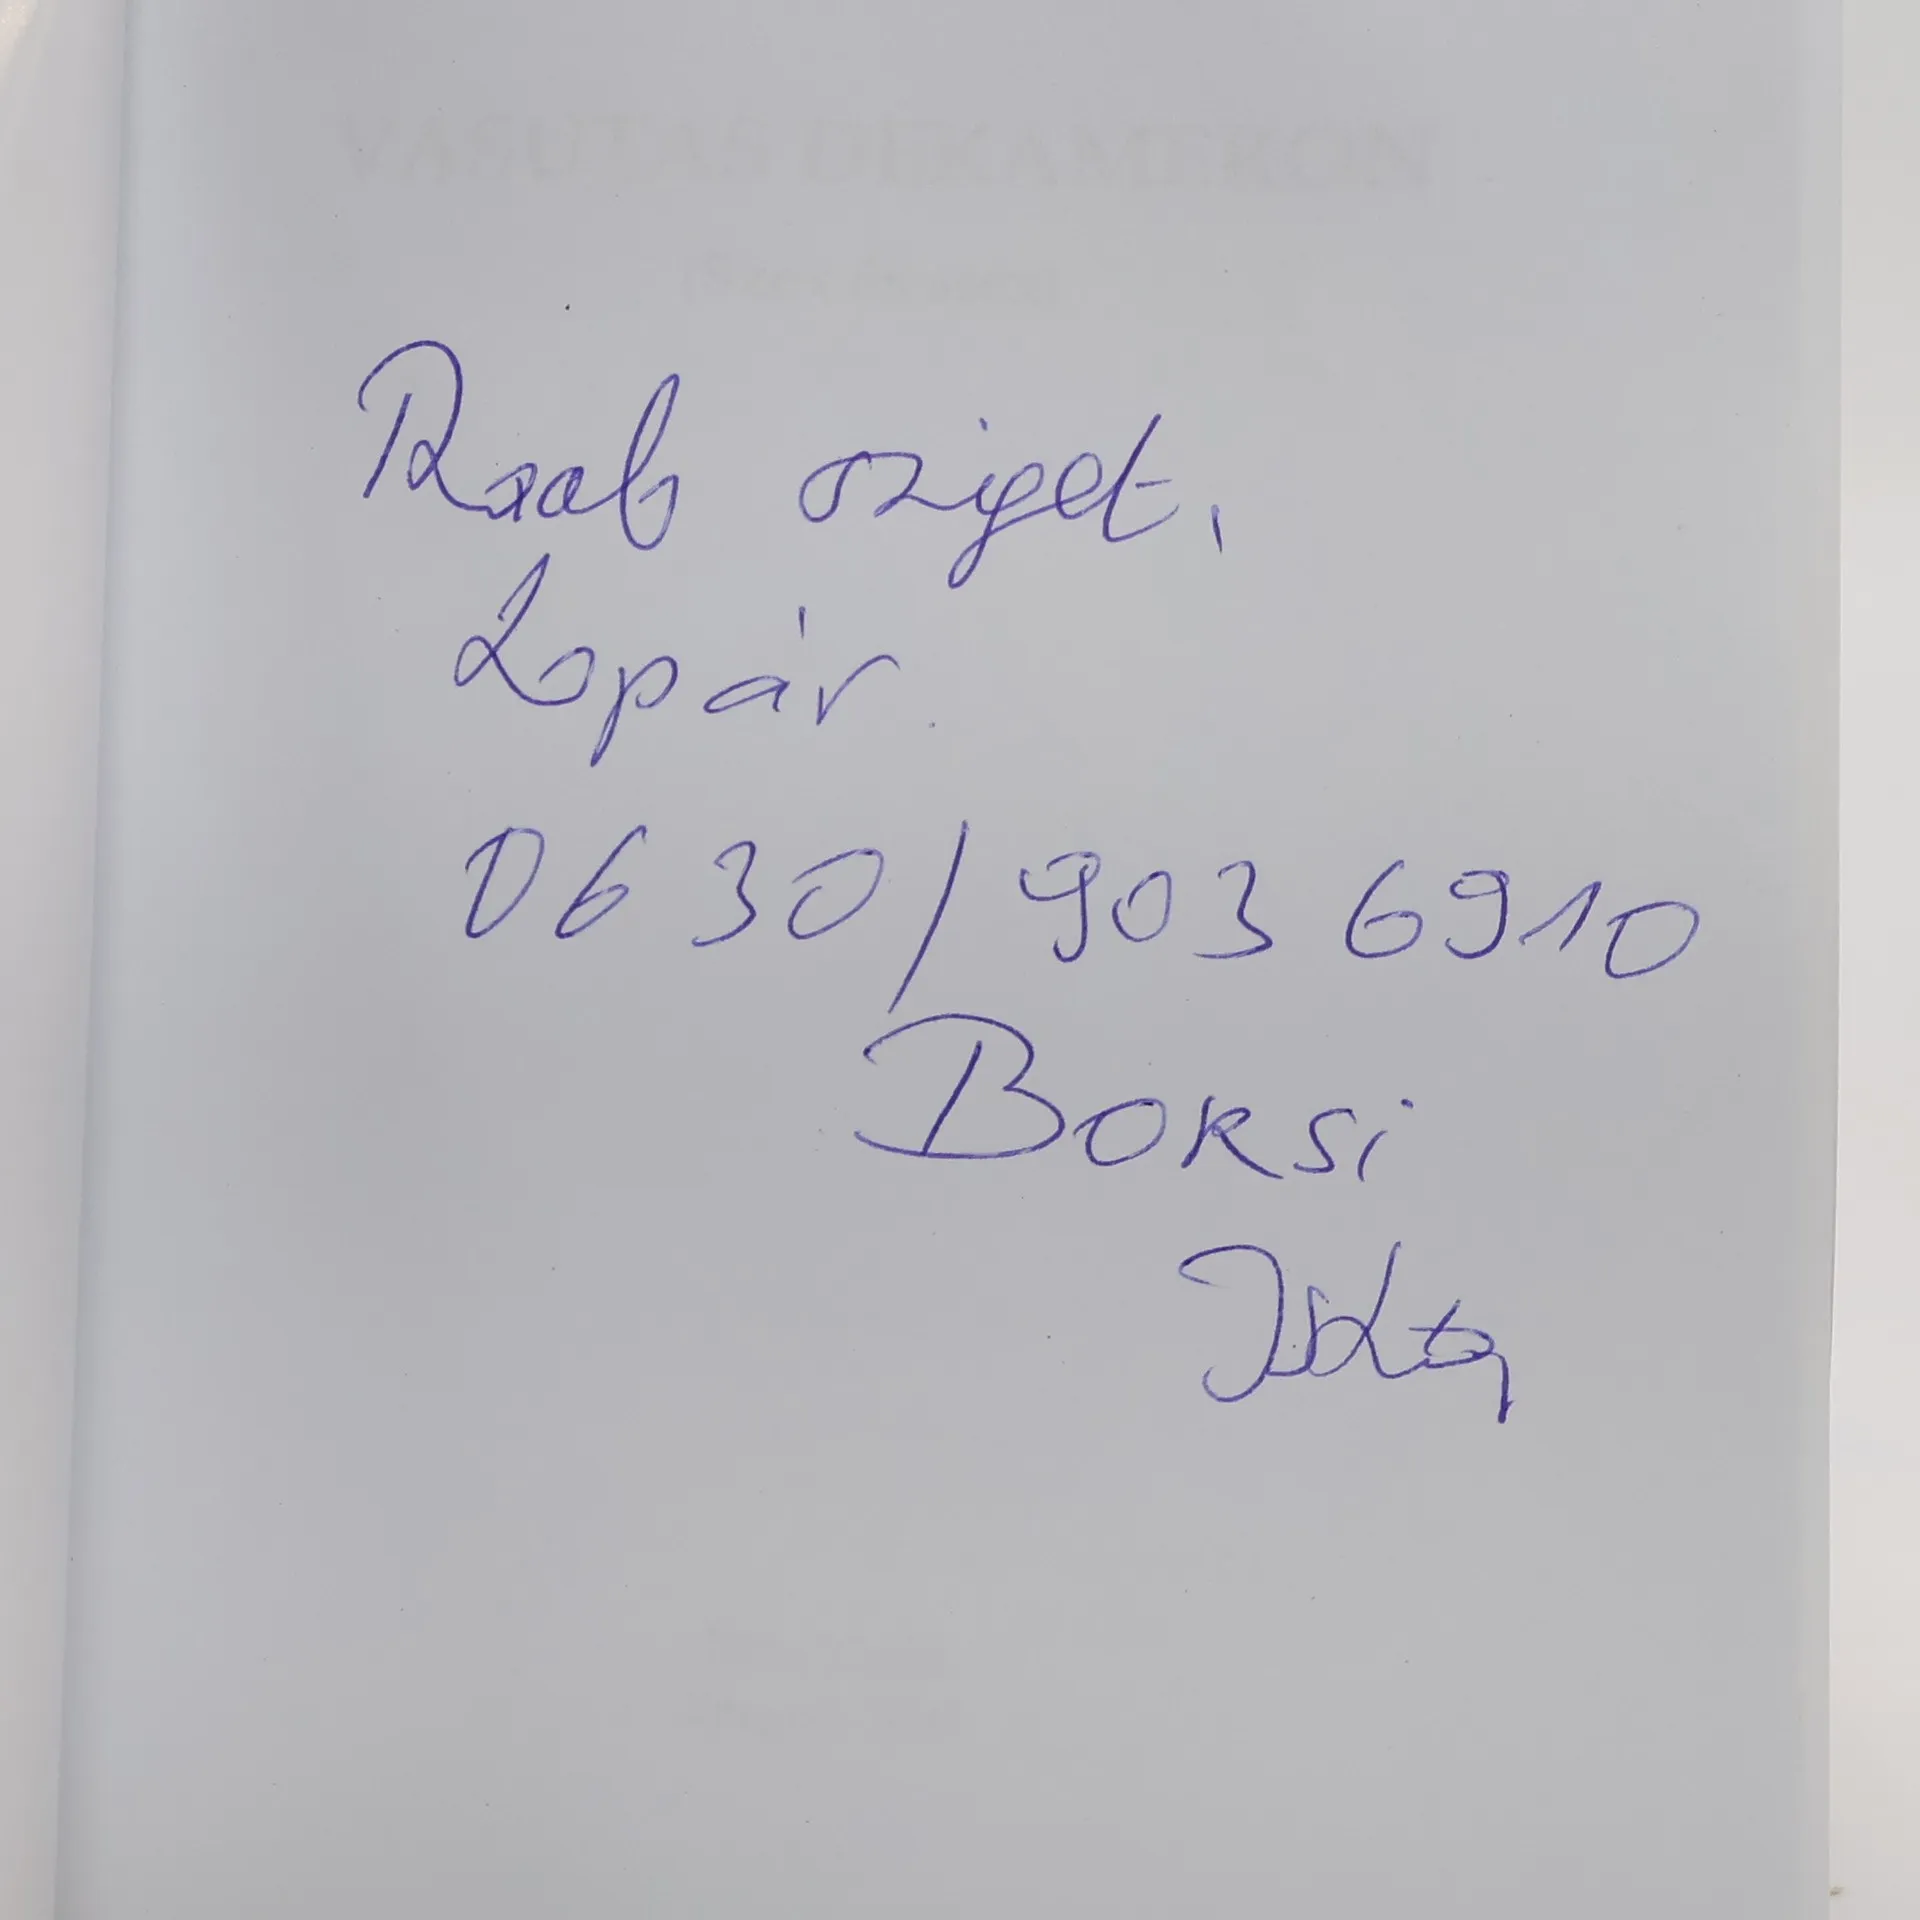 VASUTAS DEKAMERON
Raab sziget,
Lopár.
06 30/903 6910
Borsi